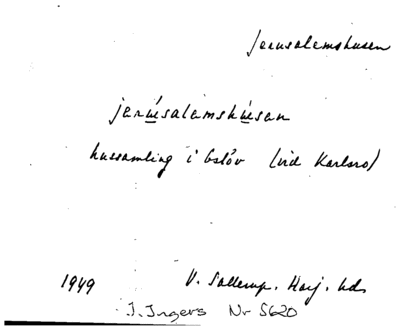 Jerusalemshusen
jerúsalamshúsan
hussamling i Eslöv (vid Karlsro)
1949 V. Sallerup. Harj. hd.
I. Ingers Nr 5620